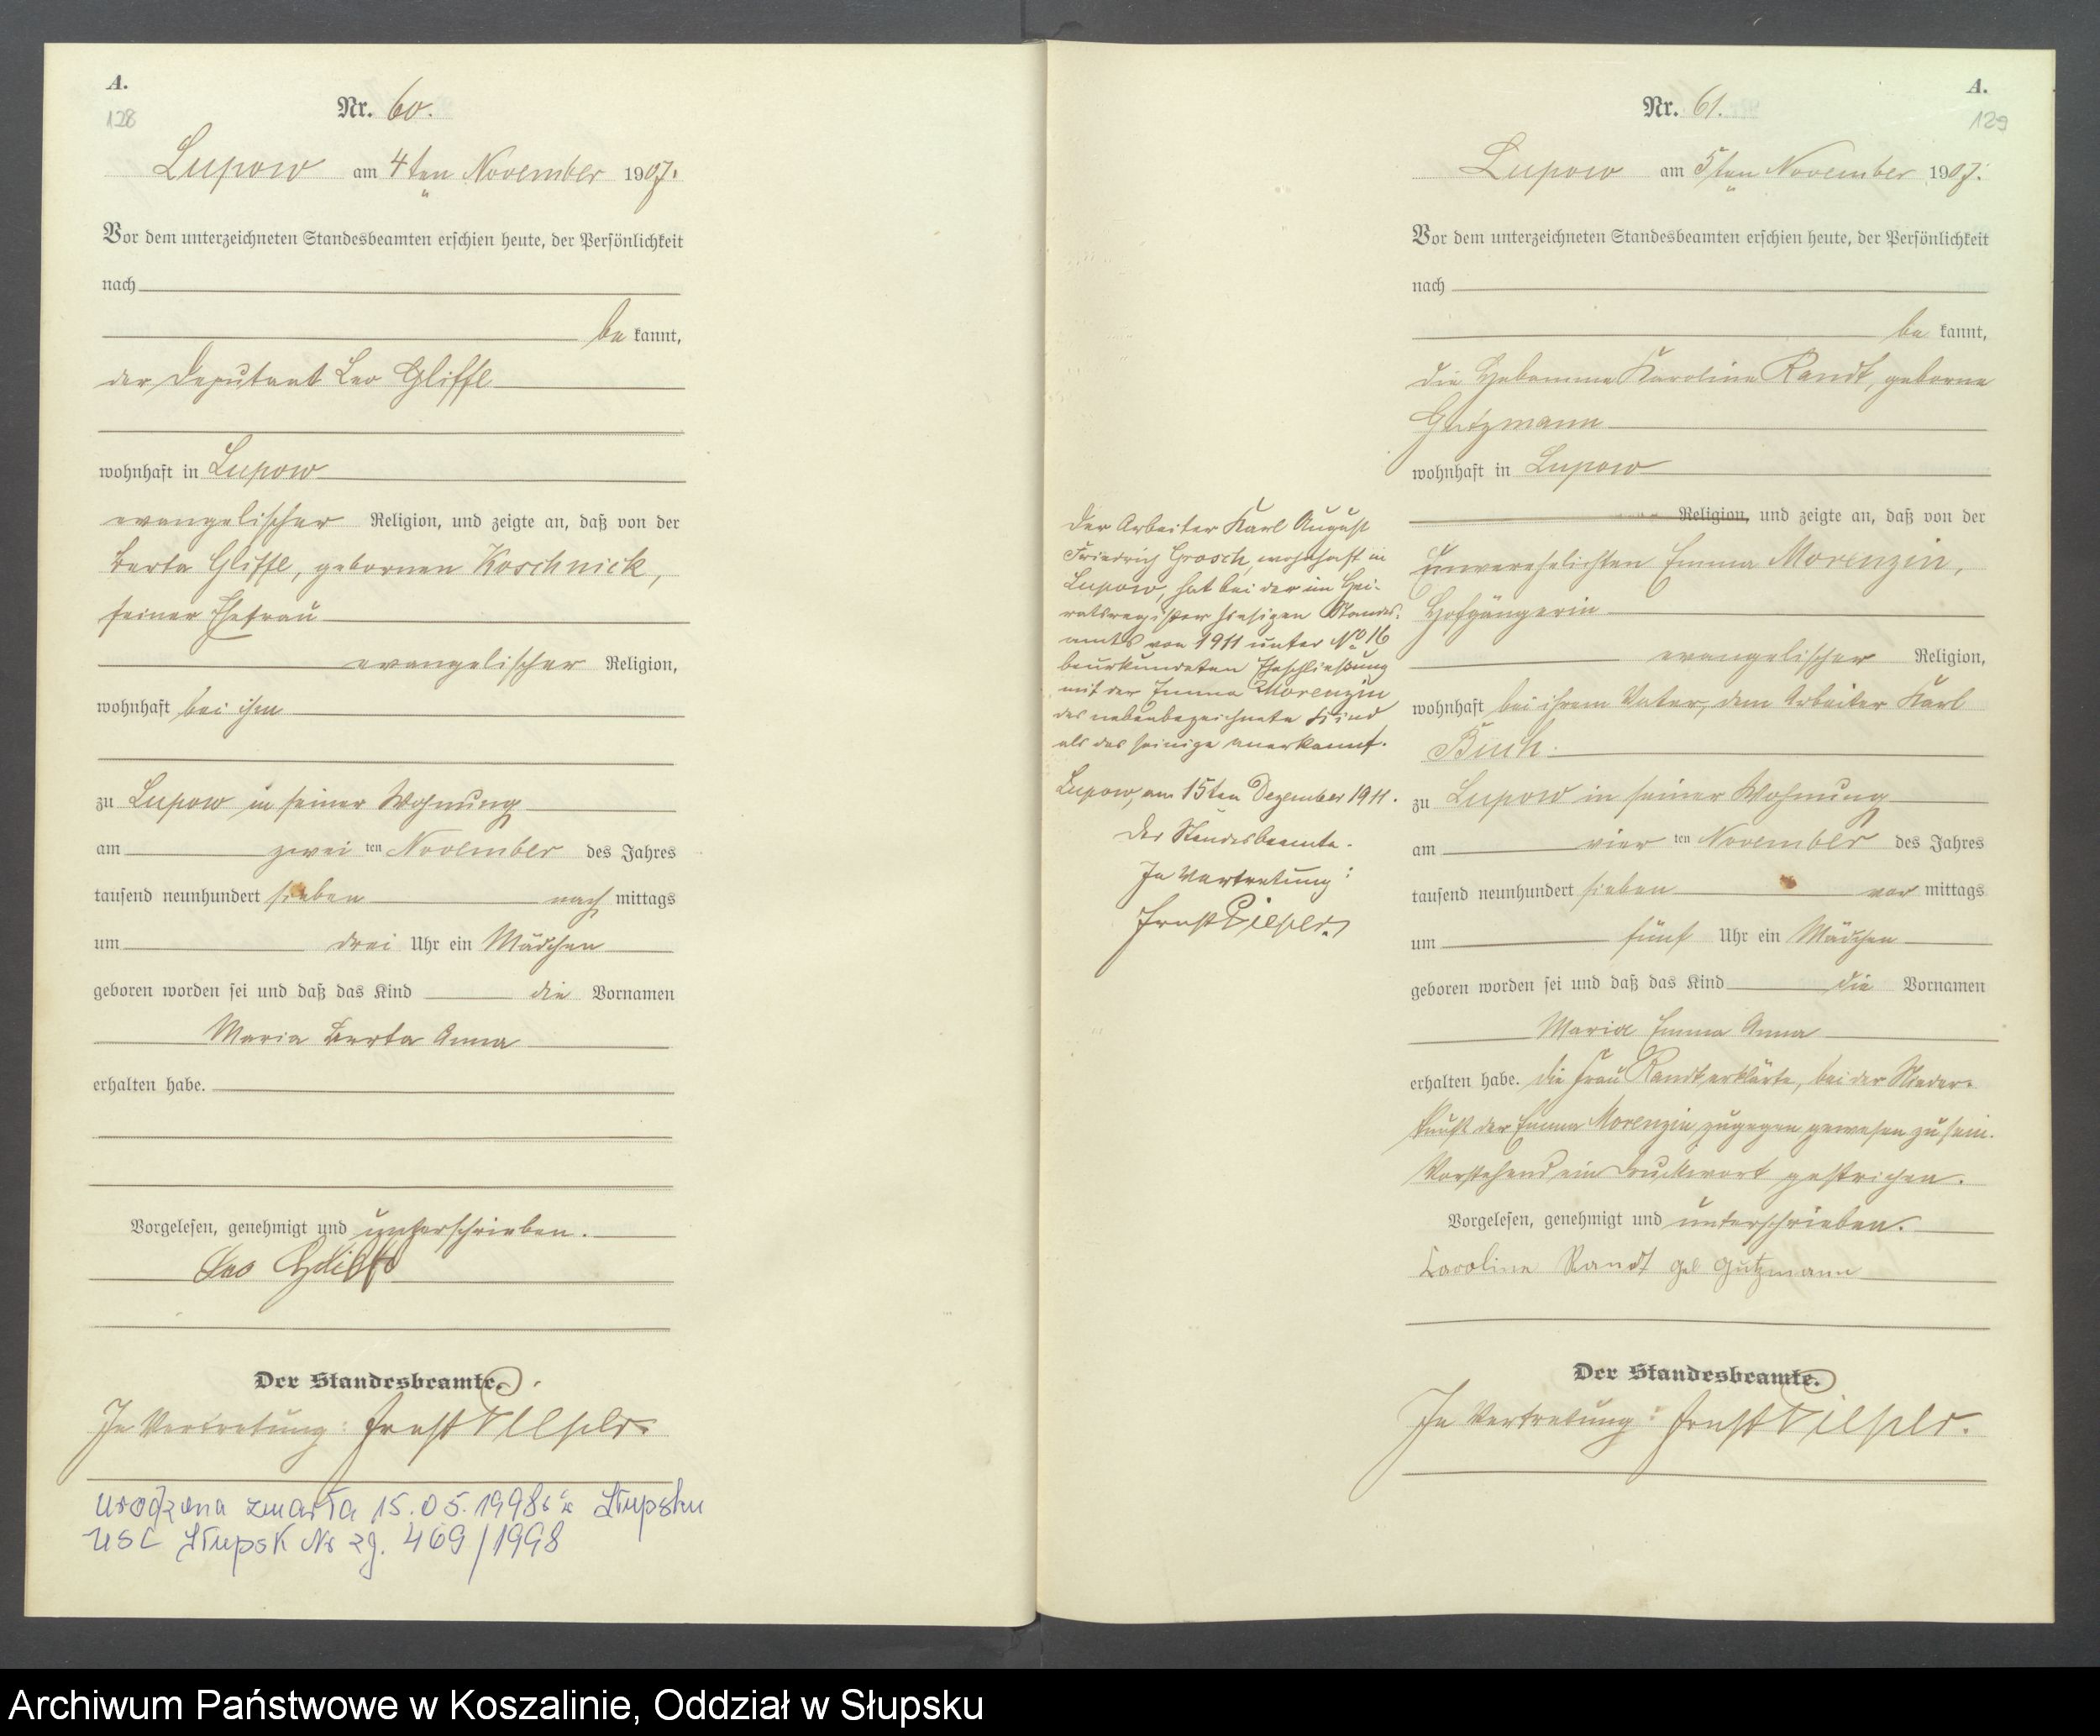 A.
128
Nr. 60.
Lupow am 4ten November 1907.
Vor dem unterzeichneten Standesbeamten erschien heute, der Persönlichkeit
nach
be kannt,
der Deputant Leo Gliffe
wohnhaft in Lupow
evangelischer Religion, und zeigte an, daß von der
Berta Gliffe, gebornen Koschnick,
seiner Ehefrau
evangelischer Religion,
wohnhaft bei ihm
zu Lupow in seiner Wohnung
am zwei ten November des Jahres
tausend neunhundert sieben nach mittags
um drei Uhr ein Mädchen
geboren worden sei und daß das Kind die Vornamen
Maria Berta Anna
erhalten habe.
Vorgelesen, genehmigt und unterschrieben.
Leo Gliffe
Der Standesbeamte.
In Vertretung: Ernst Pieper.
urodzona zmarła 15.05.1998 r w Słupsku
USC Słupsk Nr zg. 469/1998
A.
129
Nr. 61.
Lupow am 5ten November 1907.
Vor dem unterzeichneten Standesbeamten erschien heute, der Persönlichkeit
nach
be kannt,
die Hebamme Karoline Randt, geborne
Gutzmann
wohnhaft in Lupow
Religion, und zeigte an, daß von der
unverehelichten Emma Morenzin,
Hofgängerin
evangelischer Religion,
wohnhaft bei ihrem Vater, dem Arbeiter Karl
Buch.
zu Lupow in seiner Wohnung
am vier ten November des Jahres
tausend neunhundert sieben vor mittags
um fünf Uhr ein Mädchen
geboren worden sei und daß das Kind die Vornamen
Maria Emma Anna
erhalten habe. Die Frau Randt erklärte, bei der Nieder-
kunft der Emma Morenzin zugegen gewesen zu sein.
Vorstehend ein Druckwort gestrichen.
Vorgelesen, genehmigt und unterschrieben.
Karoline Randt geb Gutzmann
Der Standesbeamte.
In Vertretung: Ernst Pieper.
Der Arbeiter Karl August
Friedrich Grosch, wohnhaft in
Lupow, hat bei der im Hei-
ratsregister hiesigen Standes-
amts von 1911 unter No 16
beurkundeten Eheschließung
mit der Emma Morenzin
das nebenbezeichnete Kind
als das seinige anerkannt.
Lupow, am 15ten Dezember 1911.
Der Standesbeamte.
In Vertretung:
Ernst Pieper.
Archiwum Państwowe w Koszalinie, Oddział w Słupsku